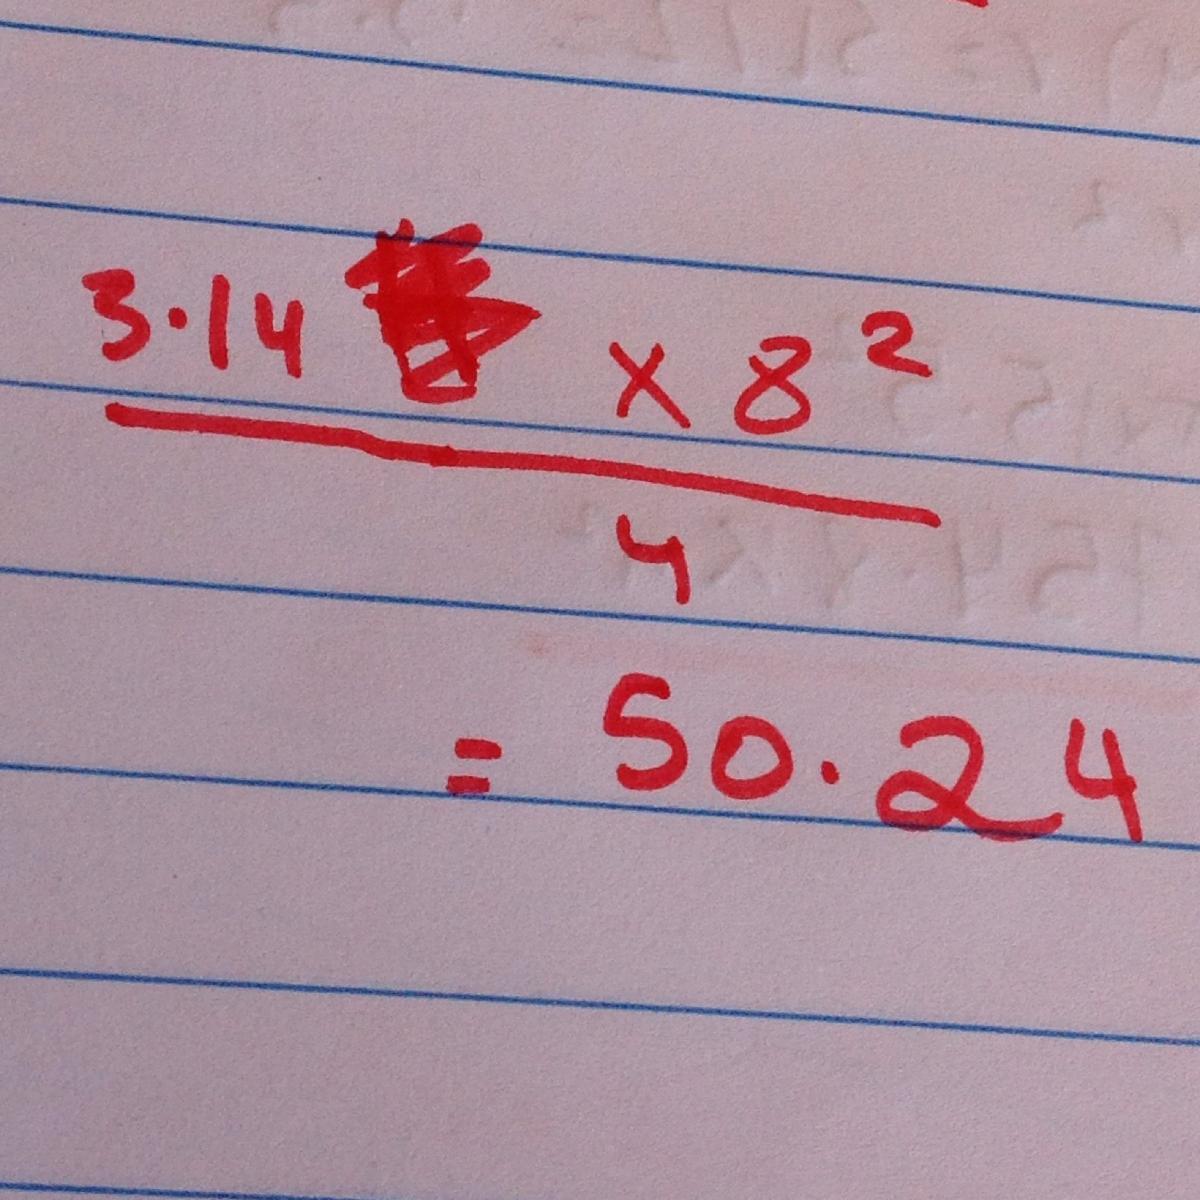 3.14 x 8²
4
= 50.24